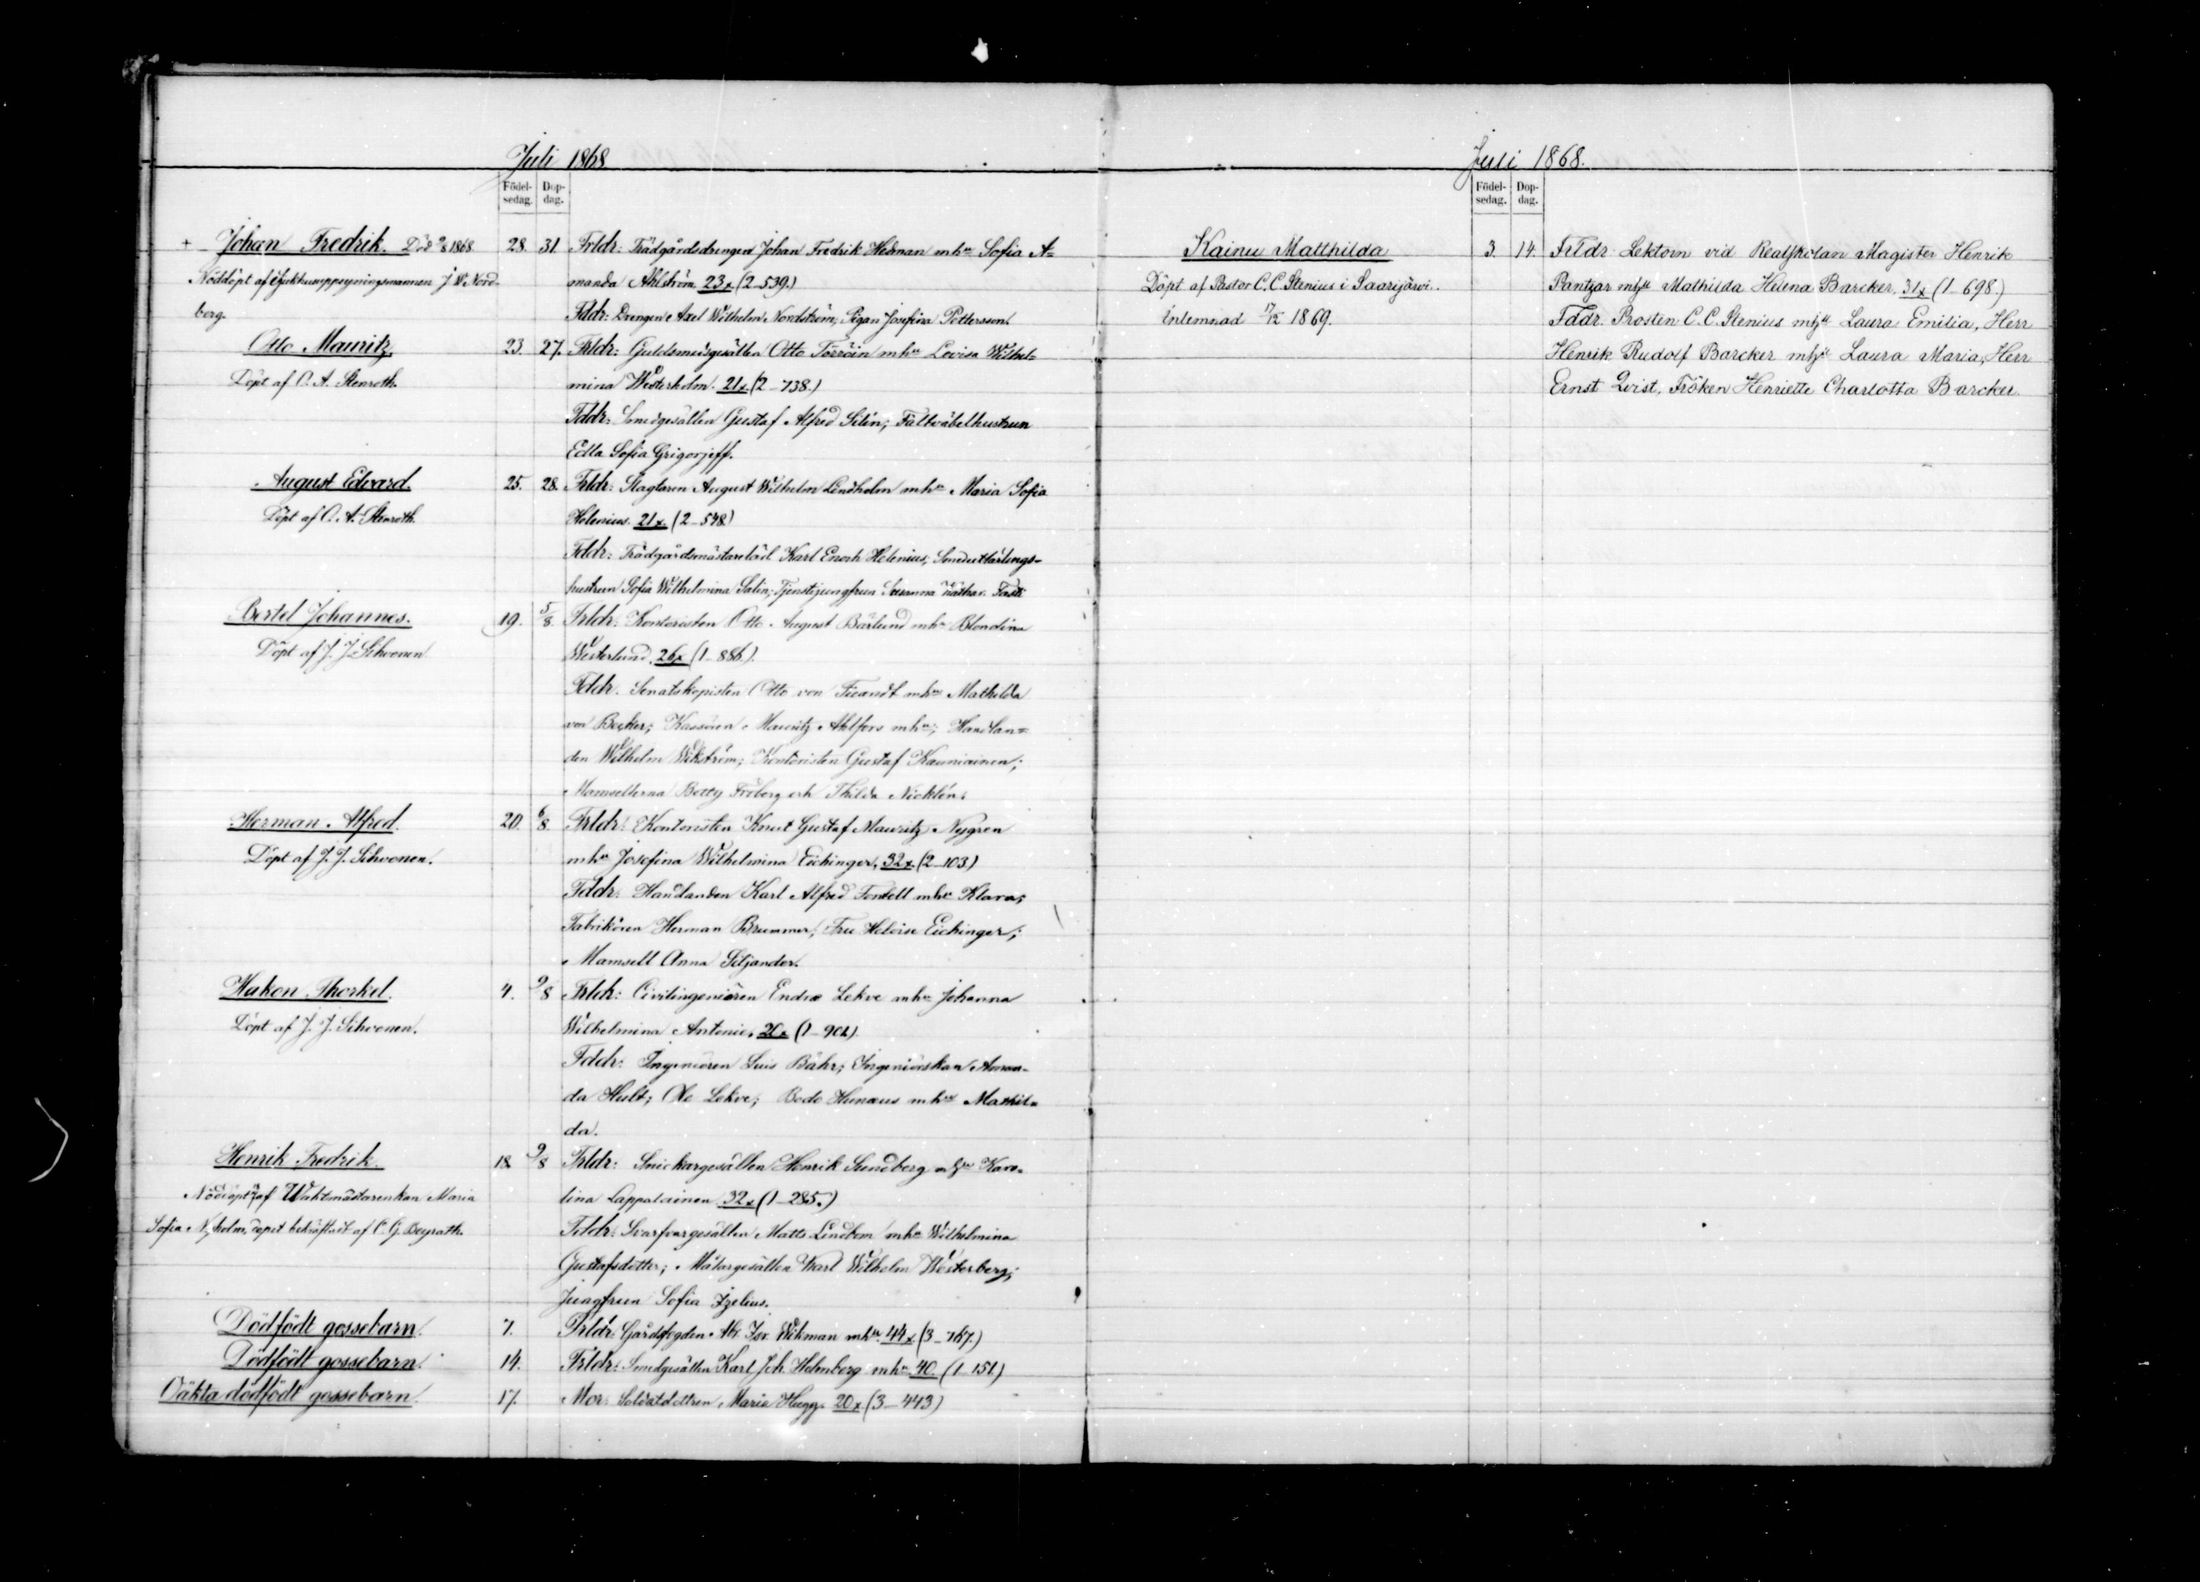 Juli 1868
Födel-
sedag.
Dop-
dag.
+ Johan Fredrik. Död 9/8 1868
28. 31.
Frldr: Trädgårdsdrengen Johan Fredrik Hedman mhu Sofia A=
Nöddöpt af J. W. Nord-
berg.
manda Ahlström 23x (2-539.)
Fddr: Drengen Axel Wilhelm Nordström, Pigan Josefina Pettersson.
Otto Mauritz.
Döpt af O. A. Stenroth.
23. 27.
Frldr: Guldsmedsgesällen Otto Törröin mhu Lovisa Wilhel-
mina Westerholm. 21x (2-738.)
Fddr: Smedgesällen Gustaf Alfred Silén; Fältväbelhustrun
Edla Sofia Grigorjeff.
August Edvard.
Döpt af O. A. Stenroth.
25. 28.
Frldr: Slagtaren August Wilhelm Lindholm mhu Maria Sofia
Helenius. 21x (2-548)
Fddr: Trädgårdsmästarelärl. Karl Enoch Helenius, Konduktörlings-
hustrun Sofia Wilhelmina Salin; Tjenstejungfrun Susanna
Bertel Johannes.
Döpt af J. J. Sihvonen
19. 5/8.
Frldr: Kontoristen Otto August Bärlund mhu Blondina
Westerlund. 26x (1-886.)
Fddr. Senatskopisten Otto von Fieandt mhu Mathilda
von Becker; Kassören Mauritz Ahlfors mhu; Handlan=
den Wilhelm Wikström; Kontoristen Gustaf Kauniainen;
Mamsellerna Betty Fröberg och Thilda Nicklén.
Herman Alfred.
Döpt af J. J. Sihvonen.
20. 6/8.
Frldr: Kontoristen Knut Gustaf Mauritz Nygren
mhu Josefina Wilhelmina Eichinger. 32x (2-103)
Fddr: Handlanden Karl Alfred Fontell mhu Klara;
Fabrikören Herman Brummer; Fru Heloise Eichinger;
Mamsell Anna Siljander.
Hakon Thorkel.
Döpt af J. J. Sihvonen.
4. 9/8
Frldr: Civilingeniören Endre Lekve mhu Johanna
Wilhelmina Antonie.
Fddr: Ingeniören Luis Bähr; Ingeniörskan Aman-
da Hult; Ole Lekve; Bodo Hunæus mhu Mathil=
da.
Henrik Fredrik.
Nöddöpt af Waktmästarenkan Maria
Sofia Nyholm, dopet bekräftadt af C. G. Beyrath.
18. 9/8
Frldr: Snickargesällen Henrik Sundberg mhu Karo-
lina Lappalainen 32x (1-285.)
Fddr: Svarfvargesällen Matts Lindbom mhu Wilhelmina
Gustafsdotter; Målargesällen Karl Wilhelm Westerberg;
Jungfrun Sofia Izelius.
Dödfödt gossebarn.
7.
Frldr: Gårdsfogden Ab. Is. Wikman mhu 44x (3-767.)
Dödfödt gossebarn.
14.
Frldr: Smedgesällen Karl Joh. Holmberg mhu 40. (1-151.)
Oäkta dödfödt gossebarn.
17.
Mor: Soldatdottren Maria Hugg. 20x (3-443)
Juli 1868.
Födel-
sedag.
Dop-
dag.
Kainu Matthilda
Döpt af Pastor C. C. Stenius i Saarijärvi.
Inlemnad 17/12 1869.
3. 14.
Frldr Lektorn vid Realskolan Magister Henrik
Pantzar mhu Mathilda Helena Barcker. 31x (1-698.)
Fddr. Prosten C. C. Stenius mhu Laura Emilia, Herr
Henrik Rudolf Barcker mhu Laura Maria, Herr
Ernst Qvist, Fröken Henriette Charlotta Barcker.